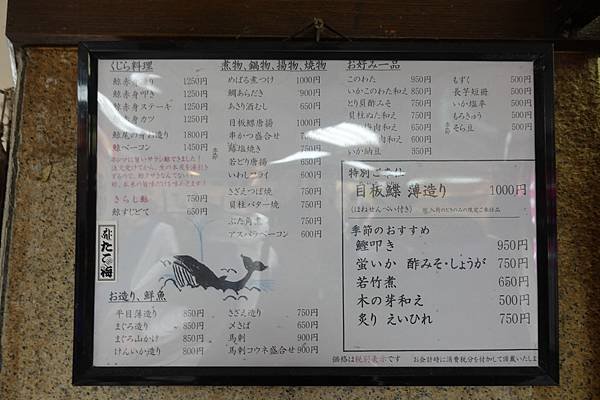 くじら料理
鯨赤身造り 1250円
鯨赤身叩き 1250円
鯨赤身ステーキ 1250円
鯨赤身カツ 1250円
鯨尾の身お造り 1800円
鯨ベーコン 1450円
さらし鯨 750円
鯨すじどて 650円
たこ梅
煮物、鍋物、揚物、焼物
めばる煮つけ 1000円
鯛あらだき 900円
あさり酒むし 650円
目板鰈唐揚 1000円
串かつ盛合せ
塩焼き 750円
若どり唐揚 650円
いわしフライ
さざえつぼ焼 750円
貝柱バター焼 750円
ぶた角煮
アスパラベーコン 600円
お好み一品
このわた 950円
いかこのわた和え 850円
とり貝酢みそ 750円
貝柱ぬた和え
梅肉和え 650円
600円
いか納豆 850円
もずく 500円
長芋短冊 500円
いか塩辛 500円
もろきゅう 500円
そら豆 500円
特別ご奉仕
目板鰈 薄造り 1000円
(ほねせんべい付き)
季節のおすすめ
鰹叩き 950円
蛍いか 酢みそ・しょうが 750円
若竹煮 650円
木の芽和え 500円
炙り えいひれ 750円
お造り、鮮魚
平目薄造り 850円
まぐろ造り 850円
まぐろ山かけ 850円
けんいか造り 800円
さざえ造り 750円
〆さば 650円
馬刺 900円
馬刺コウネ盛合せ 900円
価格は税別表示です お会計時に消費税分を付加して頂戴いたします